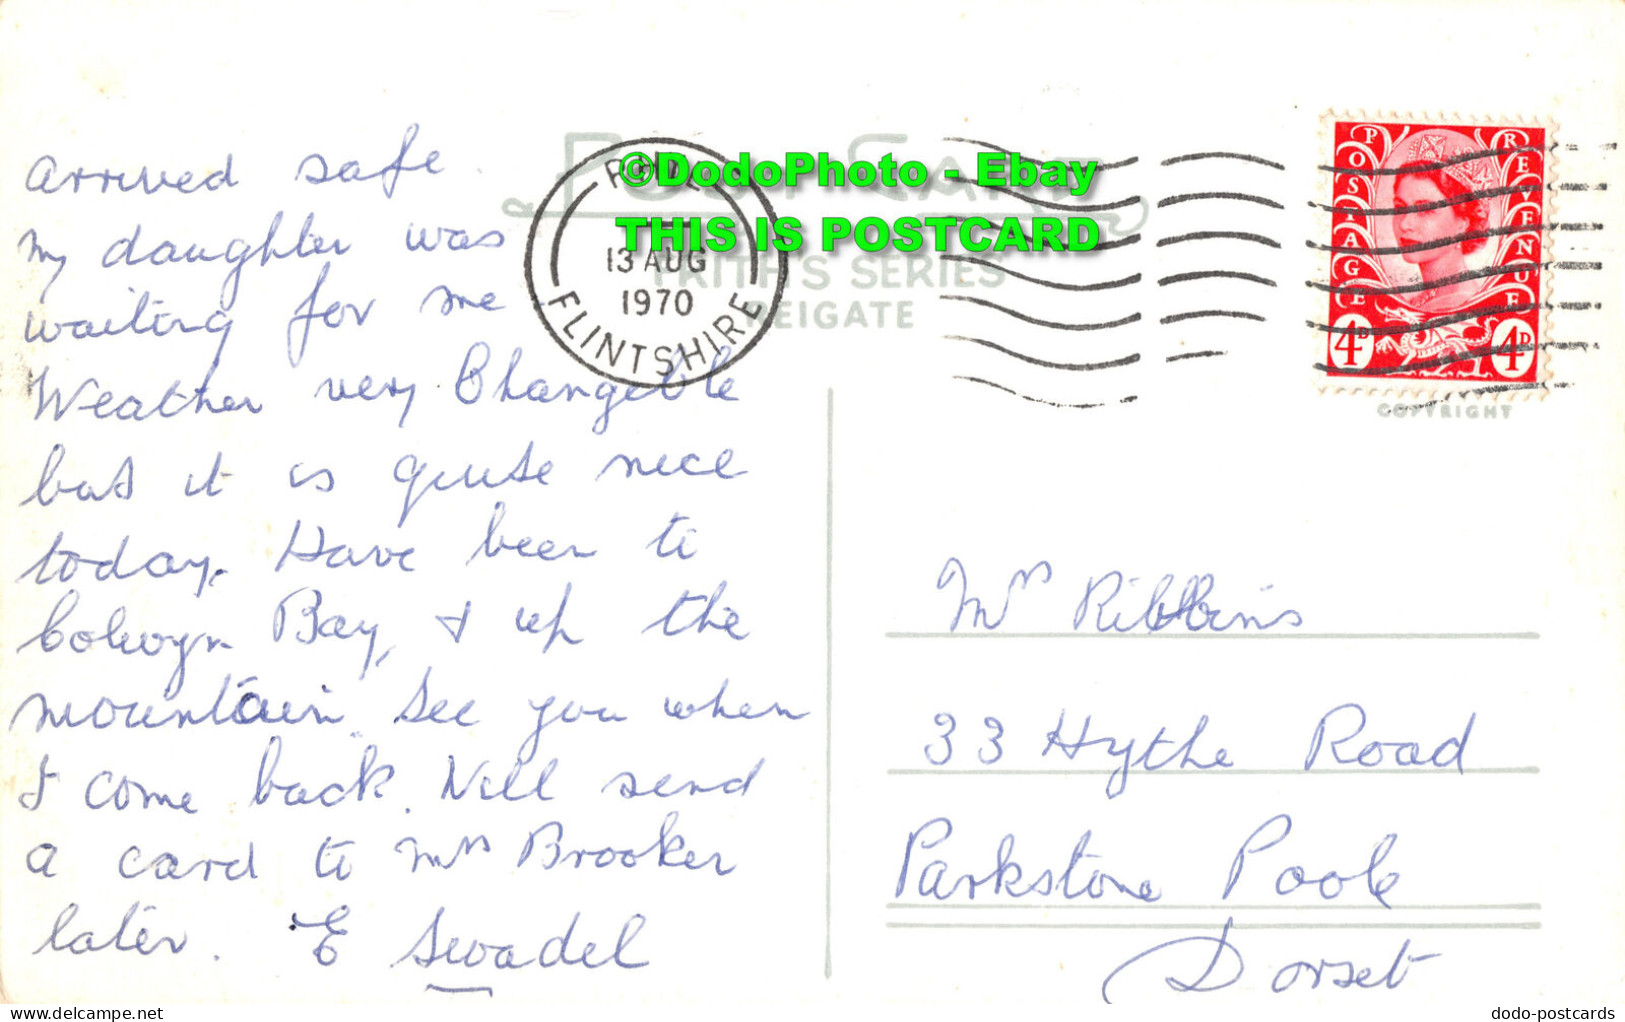 Arrived safe.
My daughter was
waiting for me
Weather very Changeble
but it is quite nice
today. Have been to
Colwyn Bay, & up the
mountain. See you when
I come back. Will send
a card to Mrs Brooker
later. E Swadel
RHYL
13 AUG
1970
FLINTSHIRE
©DodoPhoto - Ebay
THIS IS POSTCARD
FRITH'S SERIES
REIGATE
POSTAGE
REVENUE
4D
4D
COPYRIGHT
Mrs Ribbins
33 Hythe Road
Parkstone Poole
Dorset
delcampe.net
dodo-postcards